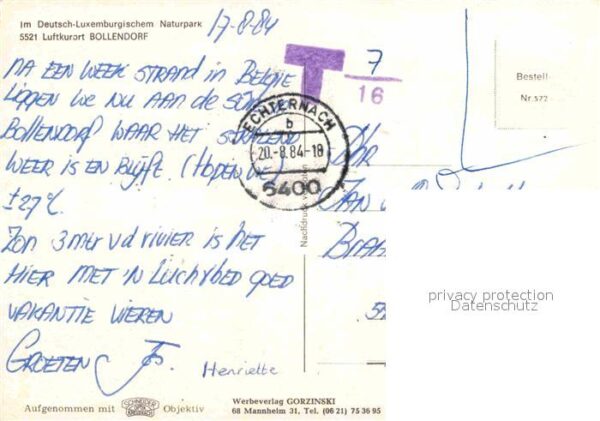 Im Deutsch-Luxemburgischem Naturpark
5521 Luftkurort BOLLENDORF
17-8-84
NA EEN WEEK STRAND in BELGIE
LIGGEN WE NU AAN de
BOLLENDORF WAAR HET STRALEND
WEER IS EN BLIJFT. (HOPEN WE)
± 27°C.
ZO'N 3 mtr v d rivier is HET
HIER MET 'N LUCHTBED GOED
VAKANTIE VIEREN
GROETEN
Henriette
T
7
16
ECHTERNACH
b
20.-8.84-18
6400
Bestell
Nr. 572
JAN
Nachdruck verboten
privacy protection
Datenschutz
Aufgenommen mit SCHNEIDER KREUZNACH Objektiv
Werbeverlag GORZINSKI
68 Mannheim 31, Tel. (06 21) 75 36 95